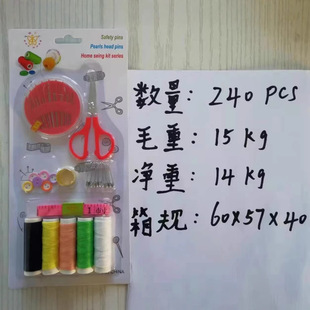 Safety pins
Pearls head pins
Home seing kit series
数量: 240 PCS
毛重: 15 Kg
净重: 14 Kg
箱规: 60x57x40